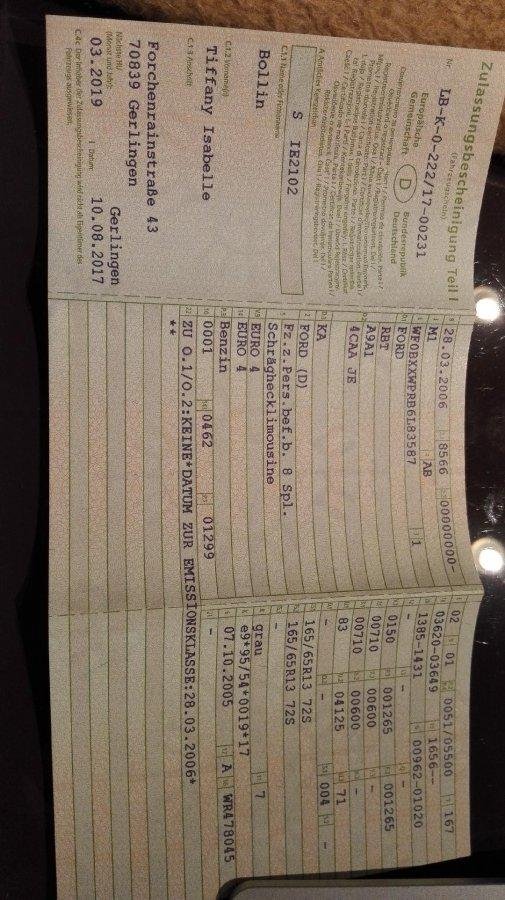 Zulassungsbescheinigung Teil I
(Fahrzeugschein)
Nr. LB-K-0-222/17-00231
Europäische
Gemeinschaft
D
Bundesrepublik
Deutschland
A Amtliches Kennzeichen
S IE2102
C.1.1 Name oder Firmenname
Bollin
C.1.2 Vorname(n)
Tiffany Isabelle
C.1.3 Anschrift
Forchenrainstraße 43
70839 Gerlingen
Nächste HU
(Monat und Jahr)
03.2019
Gerlingen
I Datum
10.08.2017
C.4c Der Inhaber der Zulassungsbescheinigung wird nicht als Eigentümer des
Fahrzeugs ausgewiesen.
28.03.2006 8566 00000000-
M1 AB
WF0BXXWPRB6L83587 1
FORD
RBT
A9A1
4CAA JE
KA
FORD (D)
Fz.z.Pers.bef.b. 8 Spl.
Schräghecklimousine
EURO 4
EURO 4
Benzin
0001 0462 01299
ZU O.1/O.2:KEINE*DATUM ZUR EMISSIONSKLASSE:28.03.2006*
**
02 01 0051/05500 167
03620-03649 1656--
1385-1431 00962-01020
- - -
0150 001265 001265
00710 00600 -
00710 00600 -
83 04125 71
- - 004 -
165/65R13 72S
165/65R13 72S
-
grau 7
e9*95/54*0019*17
07.10.2005 A WR478045
-